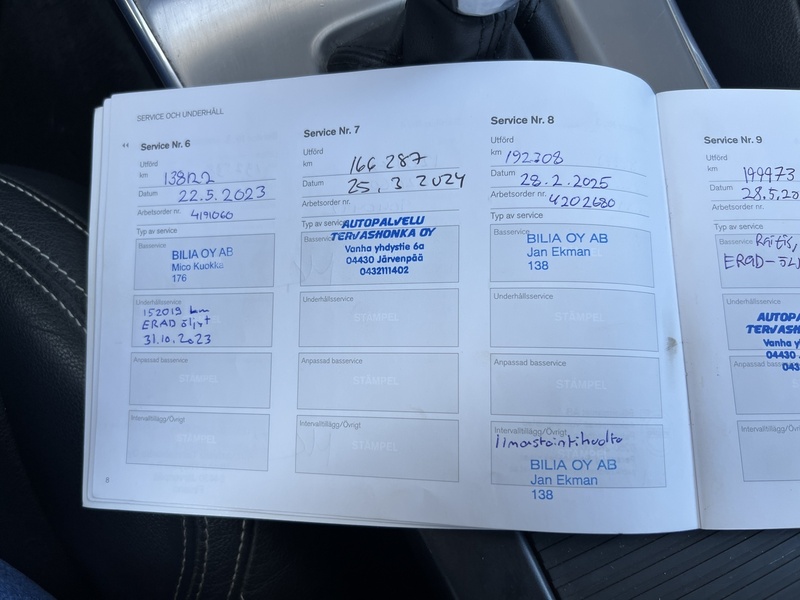 SERVICE OCH UNDERHÅLL
Service Nr. 6
Utförd
km 138122
Datum 22.5.2023
Arbetsorder nr. 4191060
Typ av service
Basservice
BILIA OY AB
Mico Kuokka
176
Underhållsservice
152019 km
ERAD öljyt
31.10.2023
Anpassad basservice
STÄMPEL
Intervalltillägg/Övrigt
STÄMPEL
8
Service Nr. 7
Utförd
km 166 287
Datum 25.3.2024
Arbetsorder nr.
Typ av service
Basservice
AUTOPALVELU
TERVASHONKA OY
Vanha yhdystie 6a
04430 Järvenpää
0432111402
Underhållsservice
STÄMPEL
Anpassad basservice
STÄMPEL
Intervalltillägg/Övrigt
STÄMPEL
Service Nr. 8
Utförd
km 192708
Datum 28.2.2025
Arbetsorder nr. 4202680
Typ av service
Basservice
BILIA OY AB
Jan Ekman
138
Underhållsservice
STÄMPEL
Anpassad basservice
STÄMPEL
Intervalltillägg/Övrigt
Ilmastointihuolto
BILIA OY AB
Jan Ekman
138
Service Nr. 9
Utförd
km 199973
Datum 28.5.20
Arbetsorder nr.
Typ av service
Basservice
ERAD-ölj
Underhållsservice
AUTOPA
TERVASH
Vanha y
04430
Anpassad basservice
043
Intervalltillägg/Övrigt